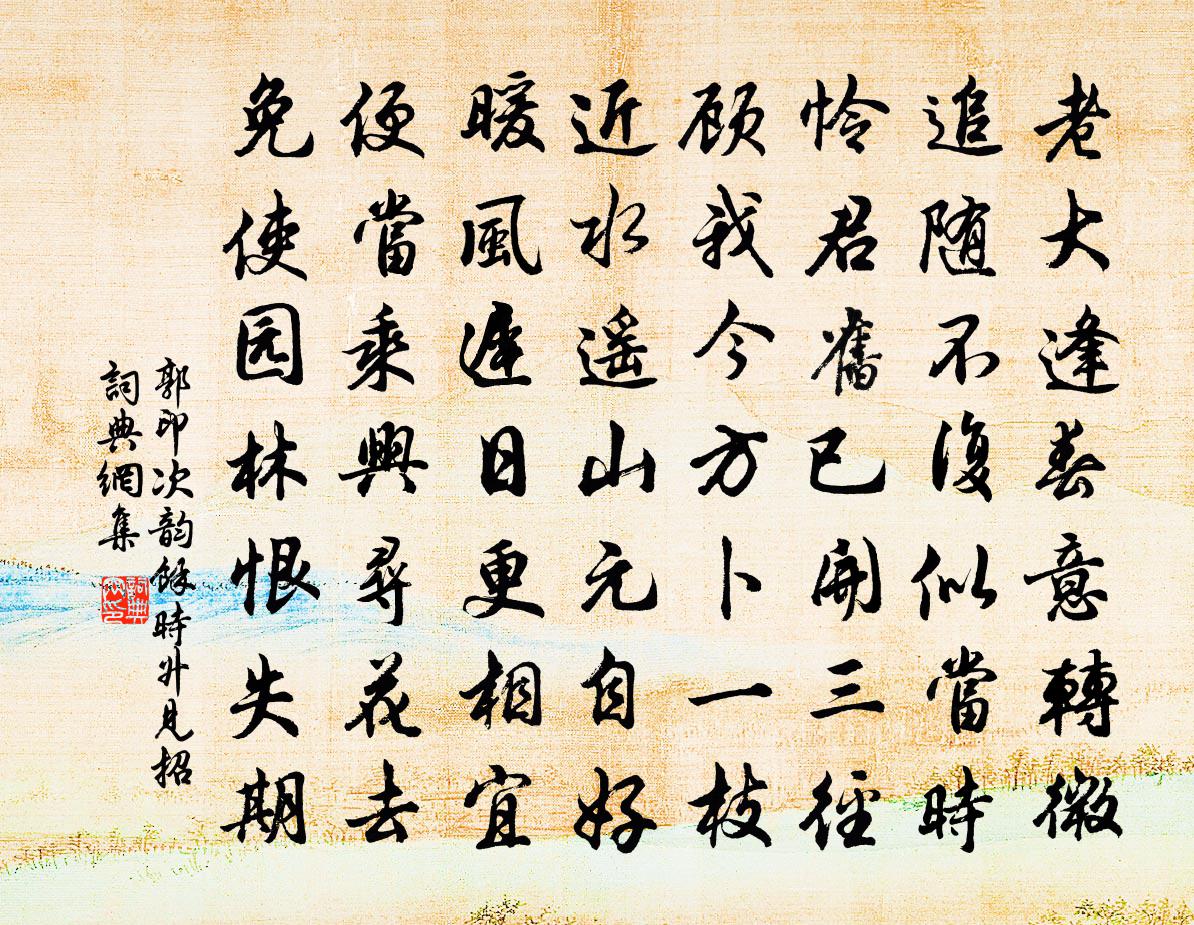 老大逢春意轉微
追随不復似當時
怜君舊已開三徑
顾我今方卜一枝
近水遥山元自好
暖風遲日更相宜
便當乘興尋花去
免使园林恨失期
郭印次韵餘時升見招
詞典網集